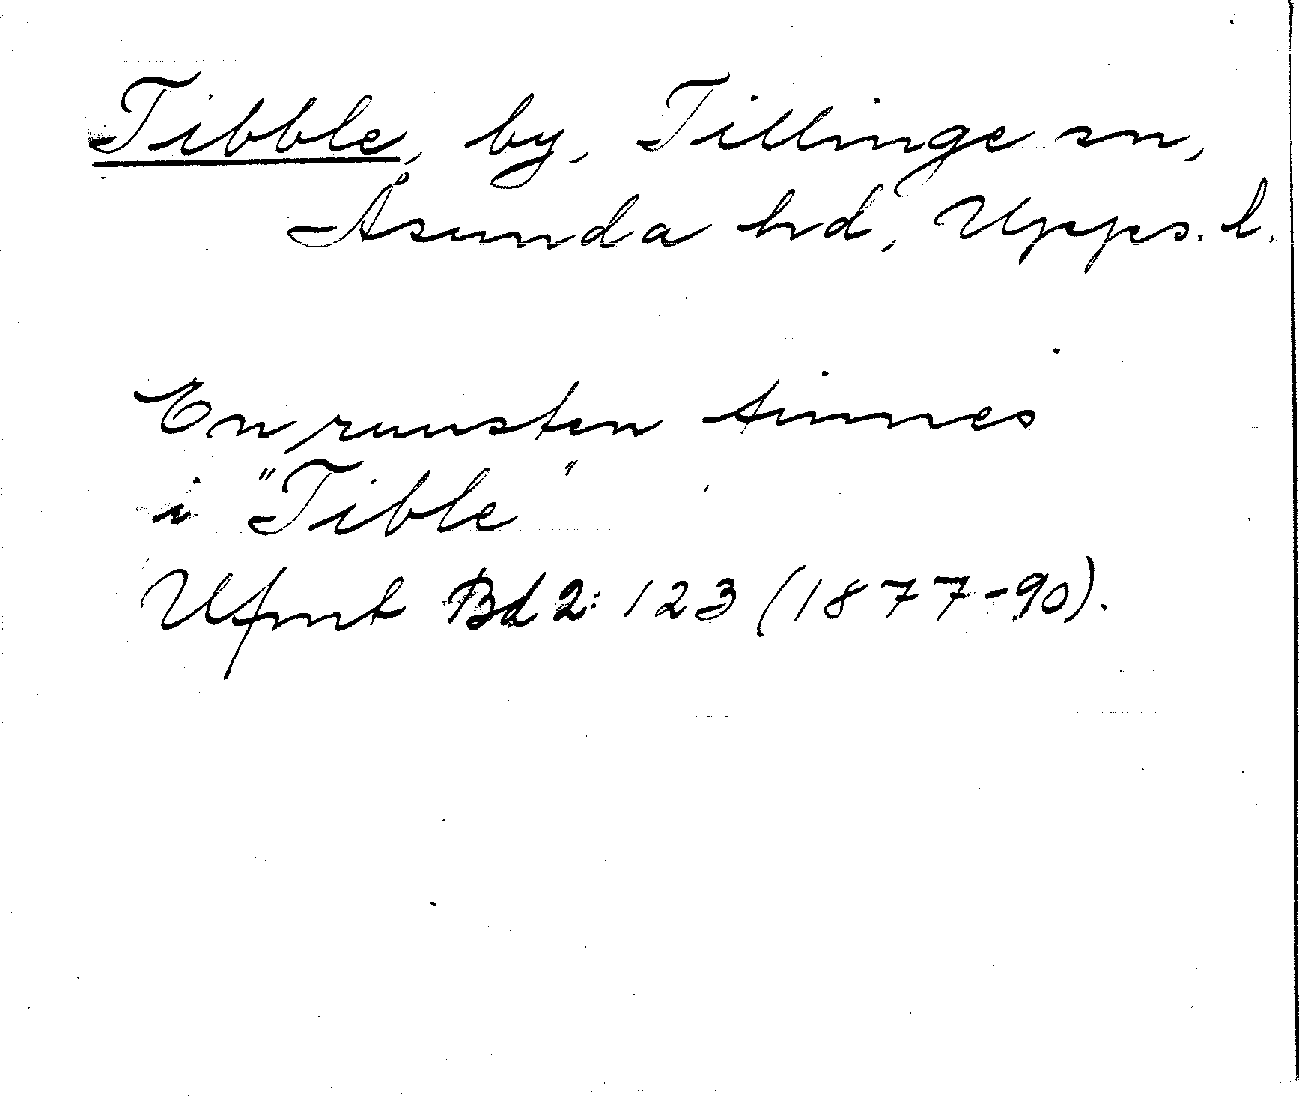 Tibble, by, Tillinge sn,
Åsunda hd, Upps. l.
En runsten finnes
i "Tible"
Ufmt Bd 2: 123 (1877-90).